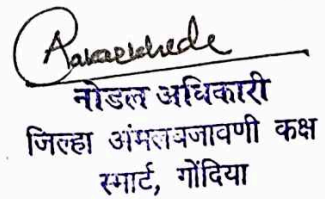 नोडल अधिकारी
जिल्हा अंमलबजावणी कक्ष
स्मार्ट, गोंदिया